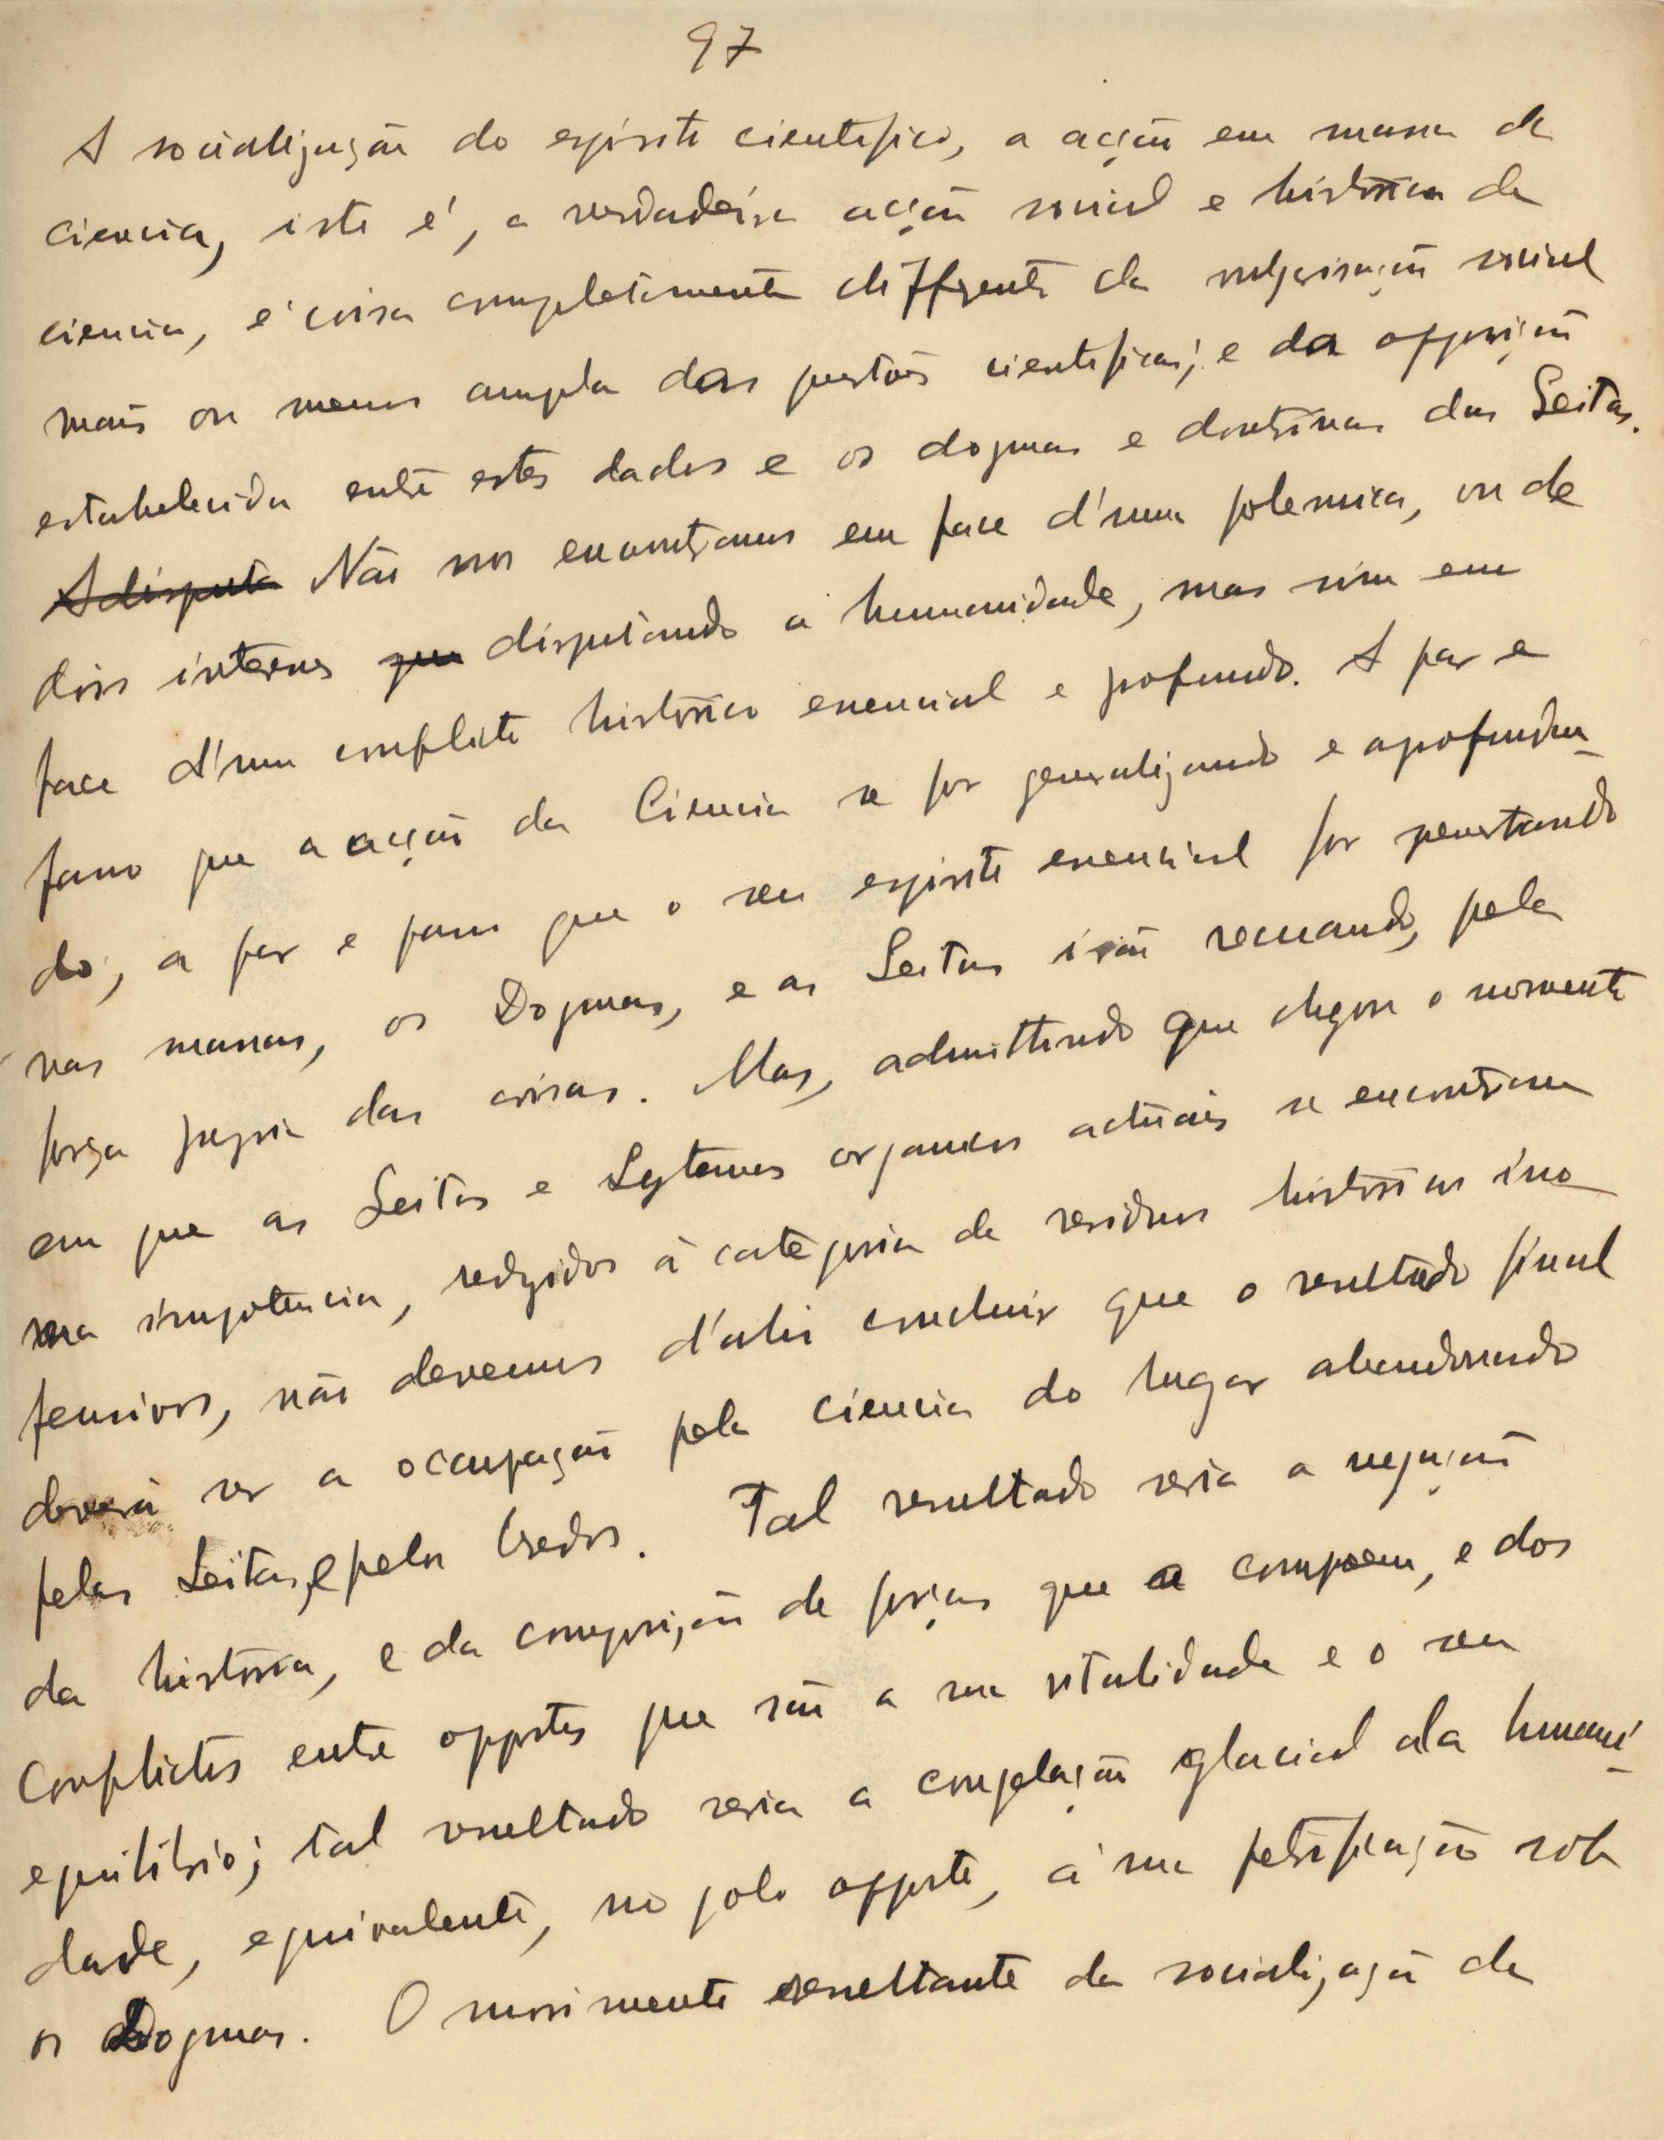 97
A socialização do espirito cientifico, a acção em massa da
ciencia, isto é, a verdadeira acção social e historica da
ciencia, é coisa completamente differente da vulgarisação social
mais ou menos ampla das questões cientificas; e da opposição
estabelecida entre estes dados e os dogmas e doutrinas das Seitas.
A disputa Não nos encontramos em face d'uma polemica, ou de
dois que disputando a humanidade, mas sim em
face d'um conflicto historico essencial e profundo. A par e
passo que a acção da Ciencia se for generalizando e aprofundan-
do, a par e passo que o seu espirito essencial for penetrando
nas massas, os Dogmas, e as Seitas irão recuando, pela
força propria das coisas. Mas, admittindo que chegou o momento
em que as Seitas e Systemas organicos actuais se encontram
na impotencia, redusidos à categoria de residuos historicos ino-
fensivos, não devemos d'ahi concluir que o resultado final
deverá ser a occupação pela ciencia do lugar abandonado
pelas Seitas, e pelos Credos. Tal resultado seria a negação
da historia, e da composição de forças que a compoem, e dos
Conflictos entre oppostos que são a sua vitalidade e o seu
equilibrio; tal resultado seria a congelação glacial da humani-
dade, equivalente, no polo opposto, á sua petrificação sob
os Dogmas. O movimento resultante da socialização da